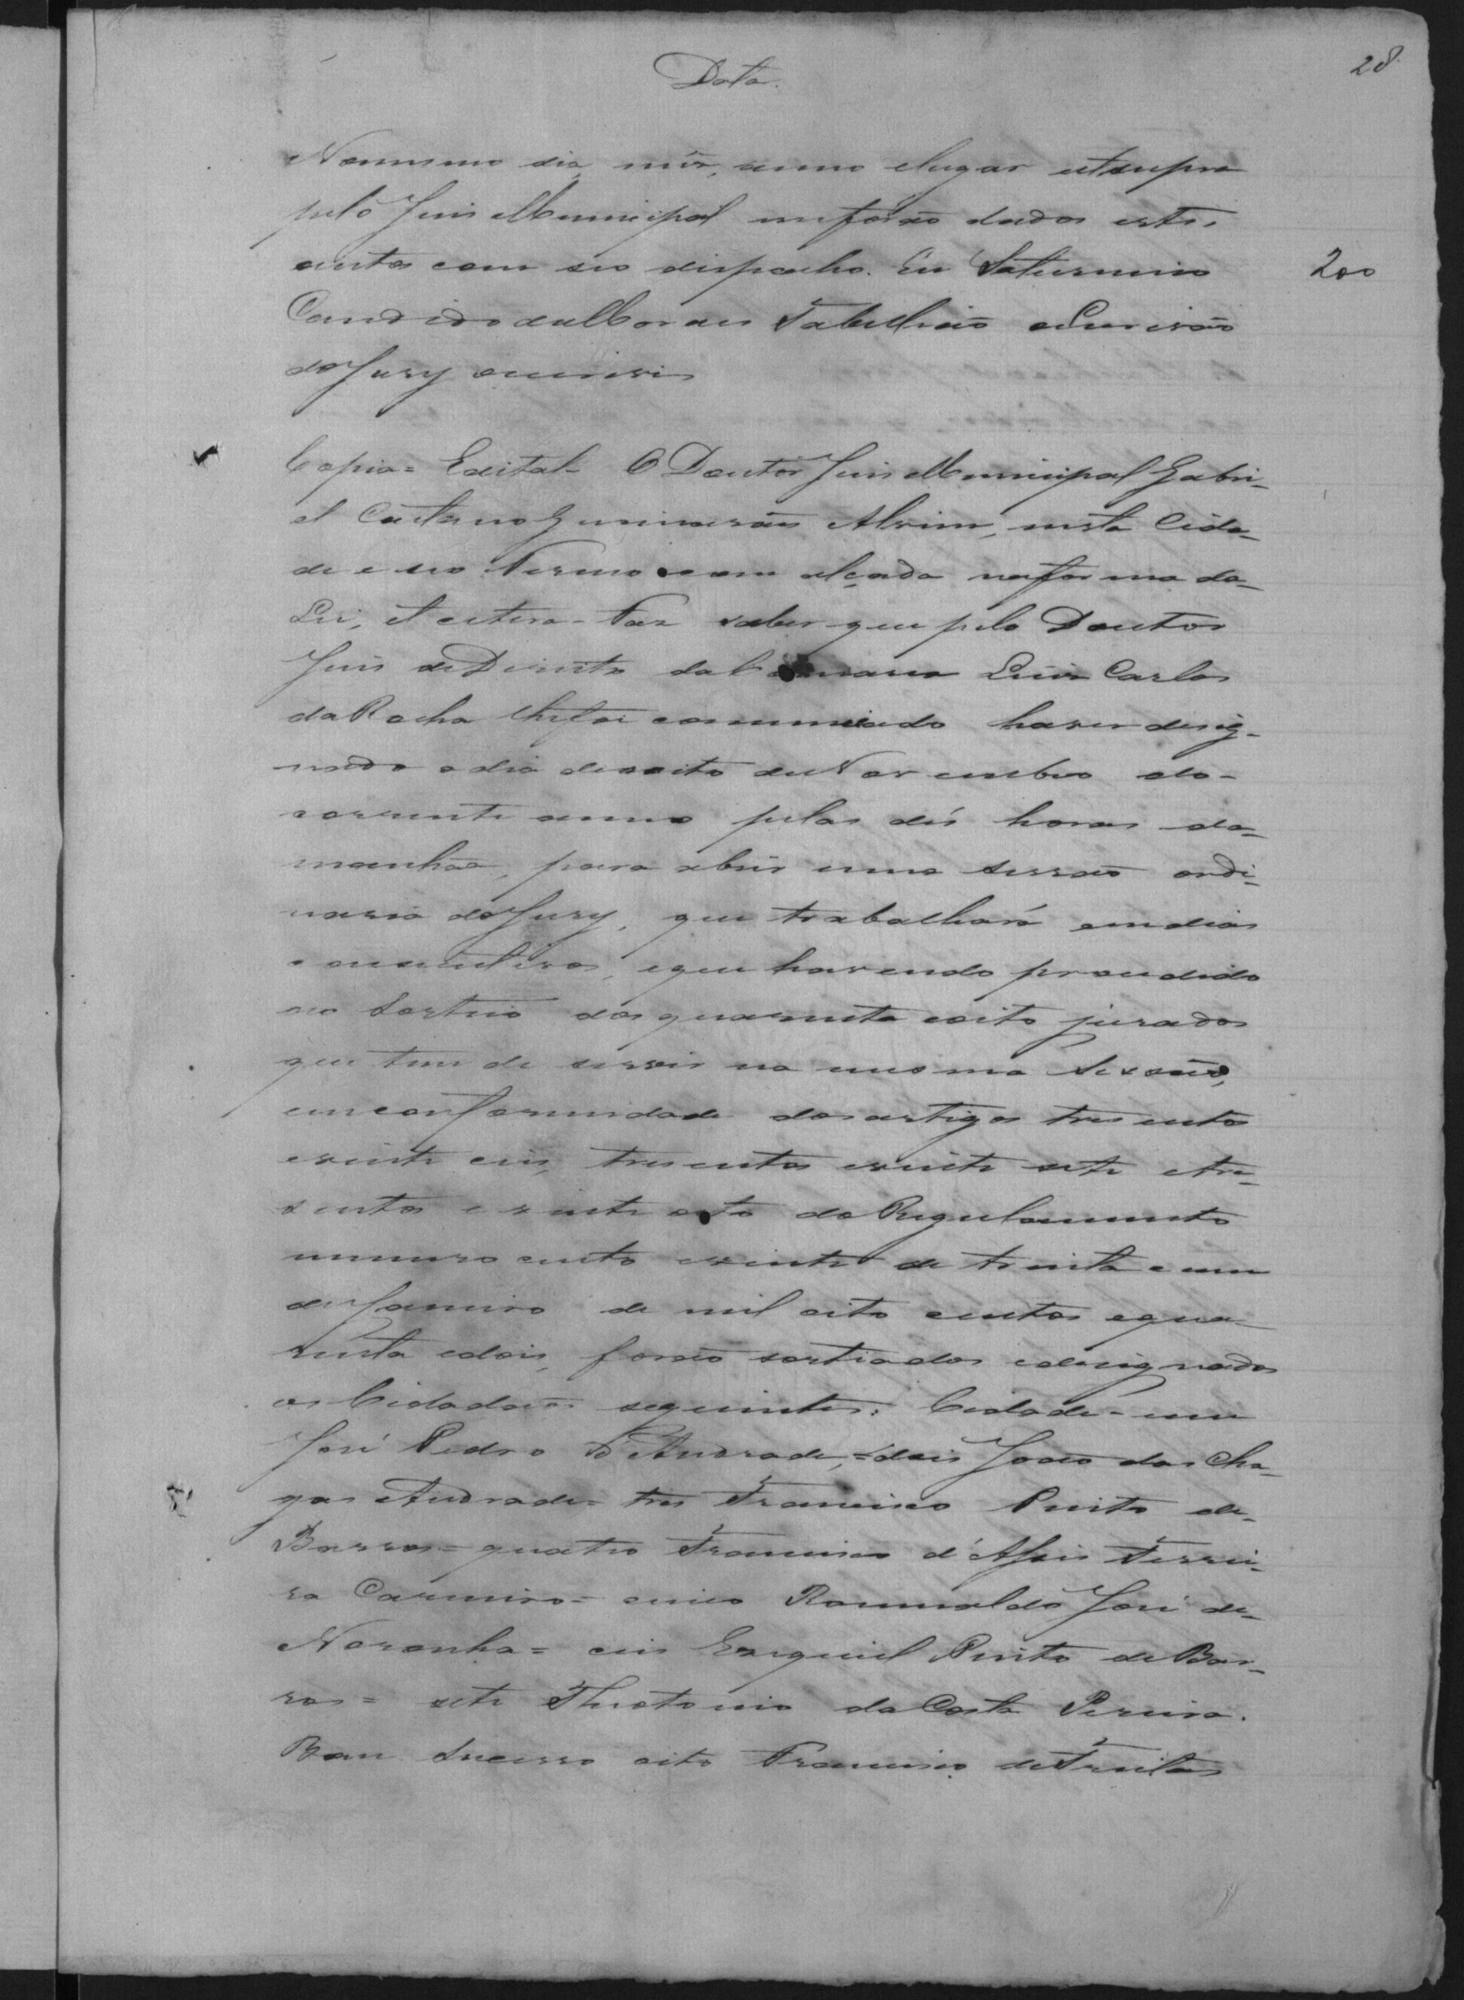 28
Data.
Nomesmo dia, mês, anno elugar utsupra
pelo Juis Municipal meforão dados estes
autos com seo dispacho. Eu Saturnino
200
Candido deMoraes Tabellião eEscrivão
doJury escrivi
Copia = Edital - O Doutor Juis Municipal Gabri-
el Caetano Guimarães Alvim, nesta Cida-
de e seo Termo com alçada naforma da-
Lei, etcetera - Faz saber que pelo Doutor
Juis deDireito daComarca Luis Carlos
daRocha lhefoi communicado haver desig-
nado odia desoito deNovembro do-
corrente anno pelas dés horas da-
manhãa, para abrir uma sessão ordi-
naria doJury, que trabalhará emdias
consecutivos, eque havendo procedido
ao sorteio dosquarenta eoito jurados
que tem de servir na mesma Sessão,
emconformidade dosartigos tresentos
evinte eseis, tresentos evinte sete etre-
sentos e vinte oito doRegulamento
numero cento evinte de trinta e um
deJaneiro de mil oito centos equa-
renta edois, forão sortiados edesignados
os Cidadãos seguintes: Cidade - um
José Pedro d'Andrade, = dois João das Cha-
gas Andrade = tres Francisco Pinto de-
Barros = quatro Francisco d'Assis Ferrei-
ra Carneiro = cinco Romualdo José de-
Noronha = seis Esequiel Pinto deBar-
ros = sete Theotonio daCosta Pereira.
Bom Sucesso oito Francisco deFreitas